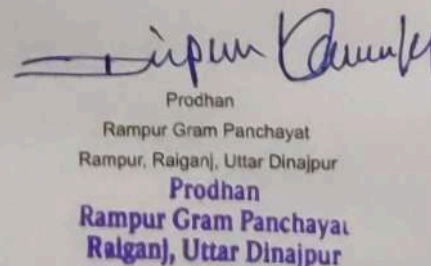 Prodhan
Rampur Gram Panchayat
Rampur, Raiganj, Uttar Dinajpur
Prodhan
Rampur Gram Panchayat
Raiganj, Uttar Dinajpur